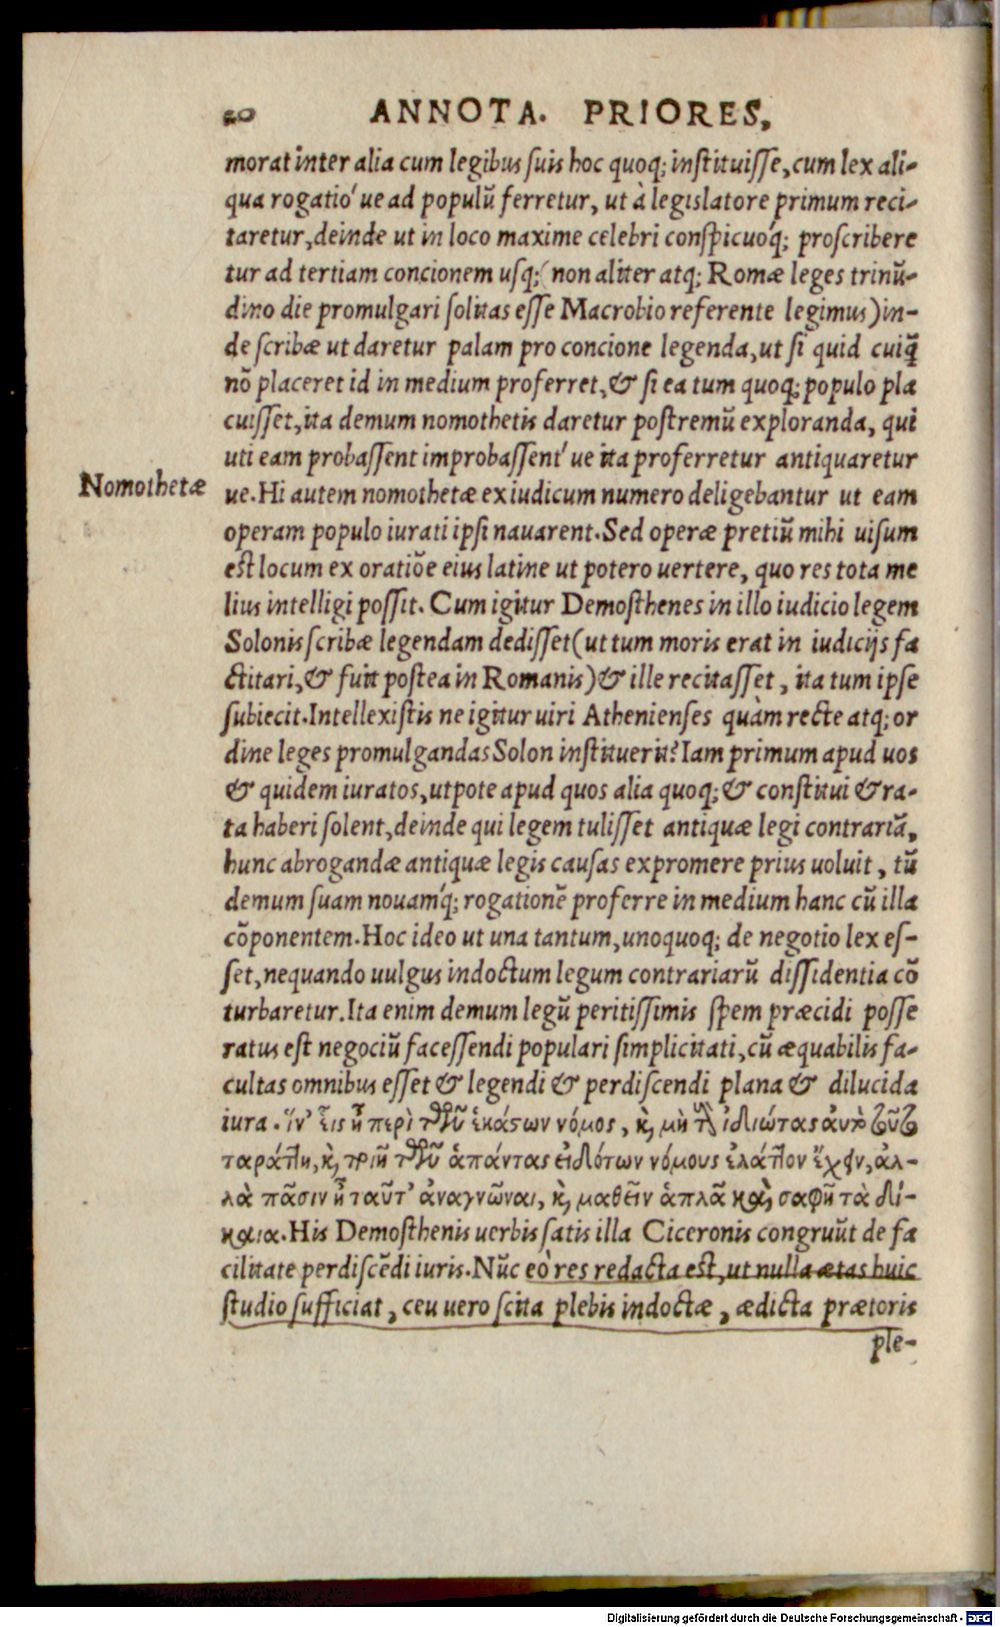 ANNOTA. PRIORES,
morat inter alia cum legibus suis hoc quoq; instituisse, cum lex ali-
qua rogatio´ue ad populũ ferretur, ut à legislatore primum reci-
taretur, deinde ut in loco maxime celebri conspicuo´q; proscribere
tur ad tertiam concionem usq; (non aliter atq; Romæ leges trinũ-
dino die promulgari solitas esse Macrobio referente legimus) in-
de scribæ ut daretur palam pro concione legenda, ut si quid cuiq̃
nõ placeret id in medium proferret, & si ea tum quoq; populo pla
cuisset, ita demum nomothetis daretur postremũ exploranda, qui
uti eam probassent improbassent´ue ita proferretur antiquaretur
Nomothetæ
ue. Hi autem nomothetæ ex iudicum numero deligebantur ut eam
operam populo iurati ipsi nauarent. Sed operæ pretiũ mihi uisum
est locum ex oratiõe eius latine ut potero uertere, quo res tota me
lius intelligi possit. Cum igitur Demosthenes in illo iudicio legem
Solonis scribæ legendam dedisset (ut tum moris erat in iudicijs fa
ctitari, & fuit postea in Romanis) & ille recitasset, ita tum ipse
subiecit. Intellexistis ne igitur uiri Athenienses quàm recte atq; or
dine leges promulgandas Solon instituerit? Iam primum apud uos
& quidem iuratos, utpote apud quos alia quoq; & constitui & ra-
ta haberi solent, deinde qui legem tulisset antiquæ legi contrariã,
hunc abrogandæ antiquæ legis causas expromere prius uoluit, tũ
demum suam nouam´q; rogationẽ proferre in medium hanc cũ illa
cõponentem. Hoc ideo ut una tantum, unoquoq; de negotio lex es-
set, nequando uulgus indoctum legum contrariarũ dissidentia cõ
turbaretur. Ita enim demum legũ peritissimis spem præcidi posse
ratus est negociũ facessendi populari simplicitati, cũ æquabilis fa-
cultas omnibus esset & legendi & perdiscendi plana & dilucida
iura. ἵν' εἷς ᾖ περὶ τῶν ἑκάστων νόμος, καὶ μὴ τοὺς ἰδιώτας αὐτὸ τοῦτο
ταράττῃ, καὶ ποιῇ τῶν ἁπάντας εἰδότων νόμους ἐλάττον ἔχειν, ἀλ-
λὰ πᾶσιν ᾖ ταῦτ' ἀναγνῶναι, καὶ μαθεῖν ἁπλᾶ καὶ σαφῆ τὰ δί-
καια. His Demosthenis uerbis satis illa Ciceronis congruũt de fa
cilitate perdiscẽdi iuris. Nũc eò res redacta est, ut nulla ætas huic
studio sufficiat, ceu uero scita plebis indoctæ, ædicta prætoris
ple-
Digitalisierung gefördert durch die Deutsche Forschungsgemeinschaft - DFG